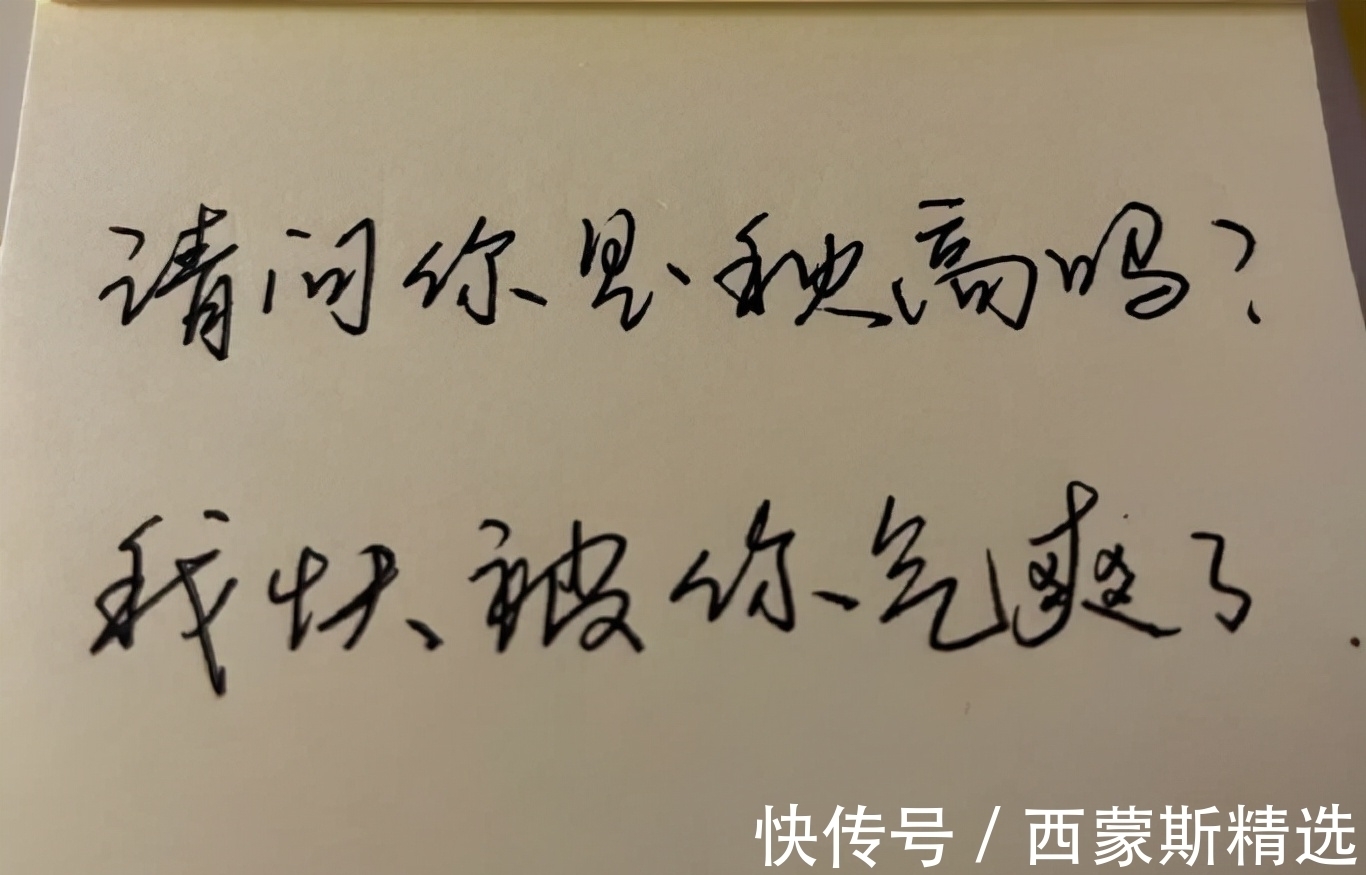 请问你是秋高吗？
我快被你气爽了
快传号 / 西蒙斯精选